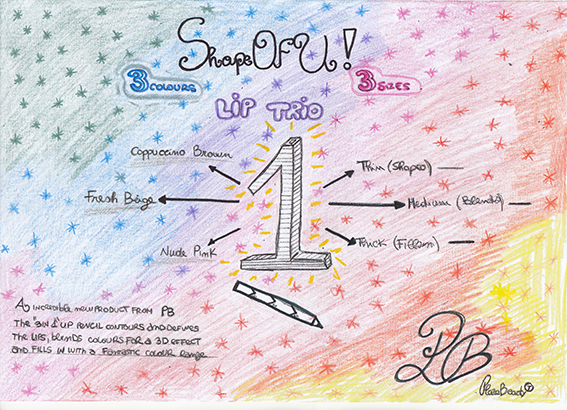 Shape Of U!
3 COLOURS
3 SIZES
LIP TRIO
1
Cappuccino Brown
Fresh Beige
Nude Pink
Thin (Shaped)
Medium (Blended)
Thick (Fill
An incredible new product from PB
The 3in1 Lip pencil contours and defines
The lips, blends colours for a 3D effect
and fills in with a fantastic colour range
PB